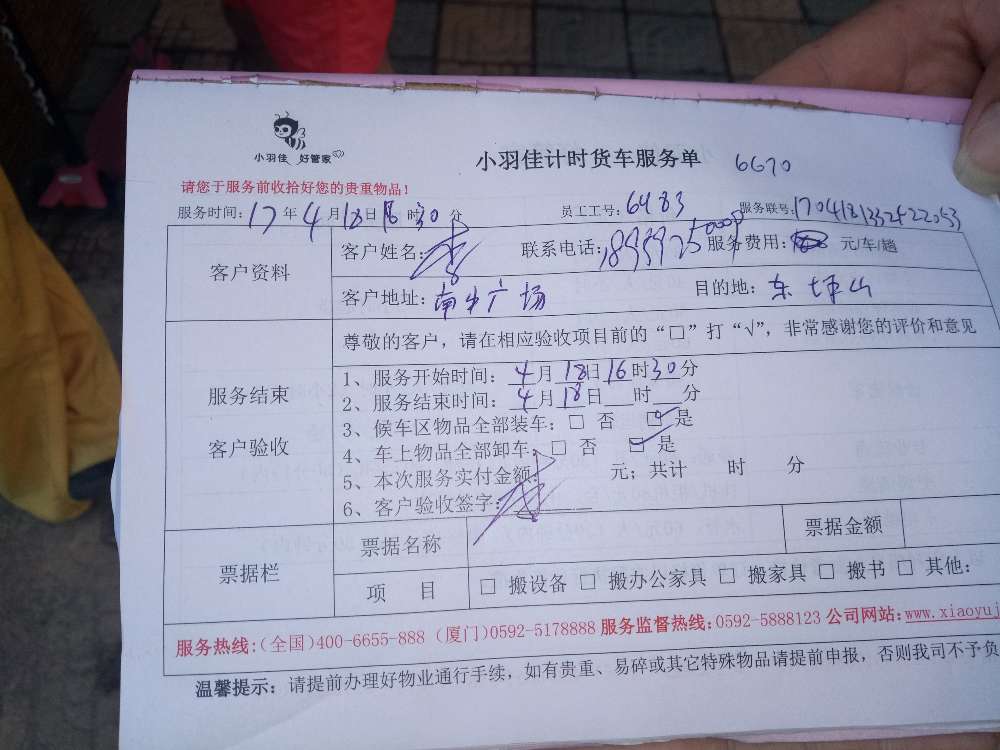 小羽佳 好管家
小羽佳计时货车服务单 6670
请您于服务前收拾好您的贵重物品！
服务时间：17年4月18日 时30分 员工工号：6483 服务联号：
客户资料
客户姓名： 联系电话： 服务费用： 元/车/趟
客户地址： 广场 目的地：东坪山
尊敬的客户，请在相应验收项目前的“□”打“√”，非常感谢您的评价和意见
服务结束
客户验收
1、服务开始时间：4月18日16时30分
2、服务结束时间：4月18日__时__分
3、候车区物品全部装车：□ 否 ☑ 是
4、车上物品全部卸车：□ 否 ☑ 是
5、本次服务实付金额： 元；共计 时 分
6、客户验收签字：
票据栏
票据名称 票据金额
项 目 □ 搬设备 □ 搬办公家具 □ 搬家具 □ 搬书 □ 其他：
服务热线：（全国）400-6655-888（厦门）0592-5178888 服务监督热线：0592-5888123 公司网站：www.xiaoyuj
温馨提示：请提前办理好物业通行手续，如有贵重、易碎或其它特殊物品请提前申报，否则我司不予负